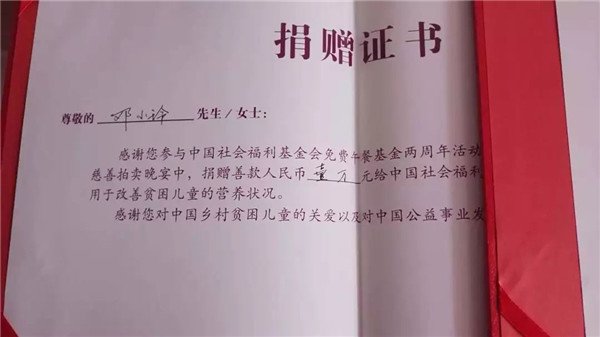 捐赠证书
尊敬的 邓小玲 先生/女士:
感谢您参与中国社会福利基金会免费午餐基金两周年活动
慈善拍卖晚宴中,捐赠善款人民币 壹万 元给中国社会福利
用于改善贫困儿童的营养状况。
感谢您对中国乡村贫困儿童的关爱以及对中国公益事业发